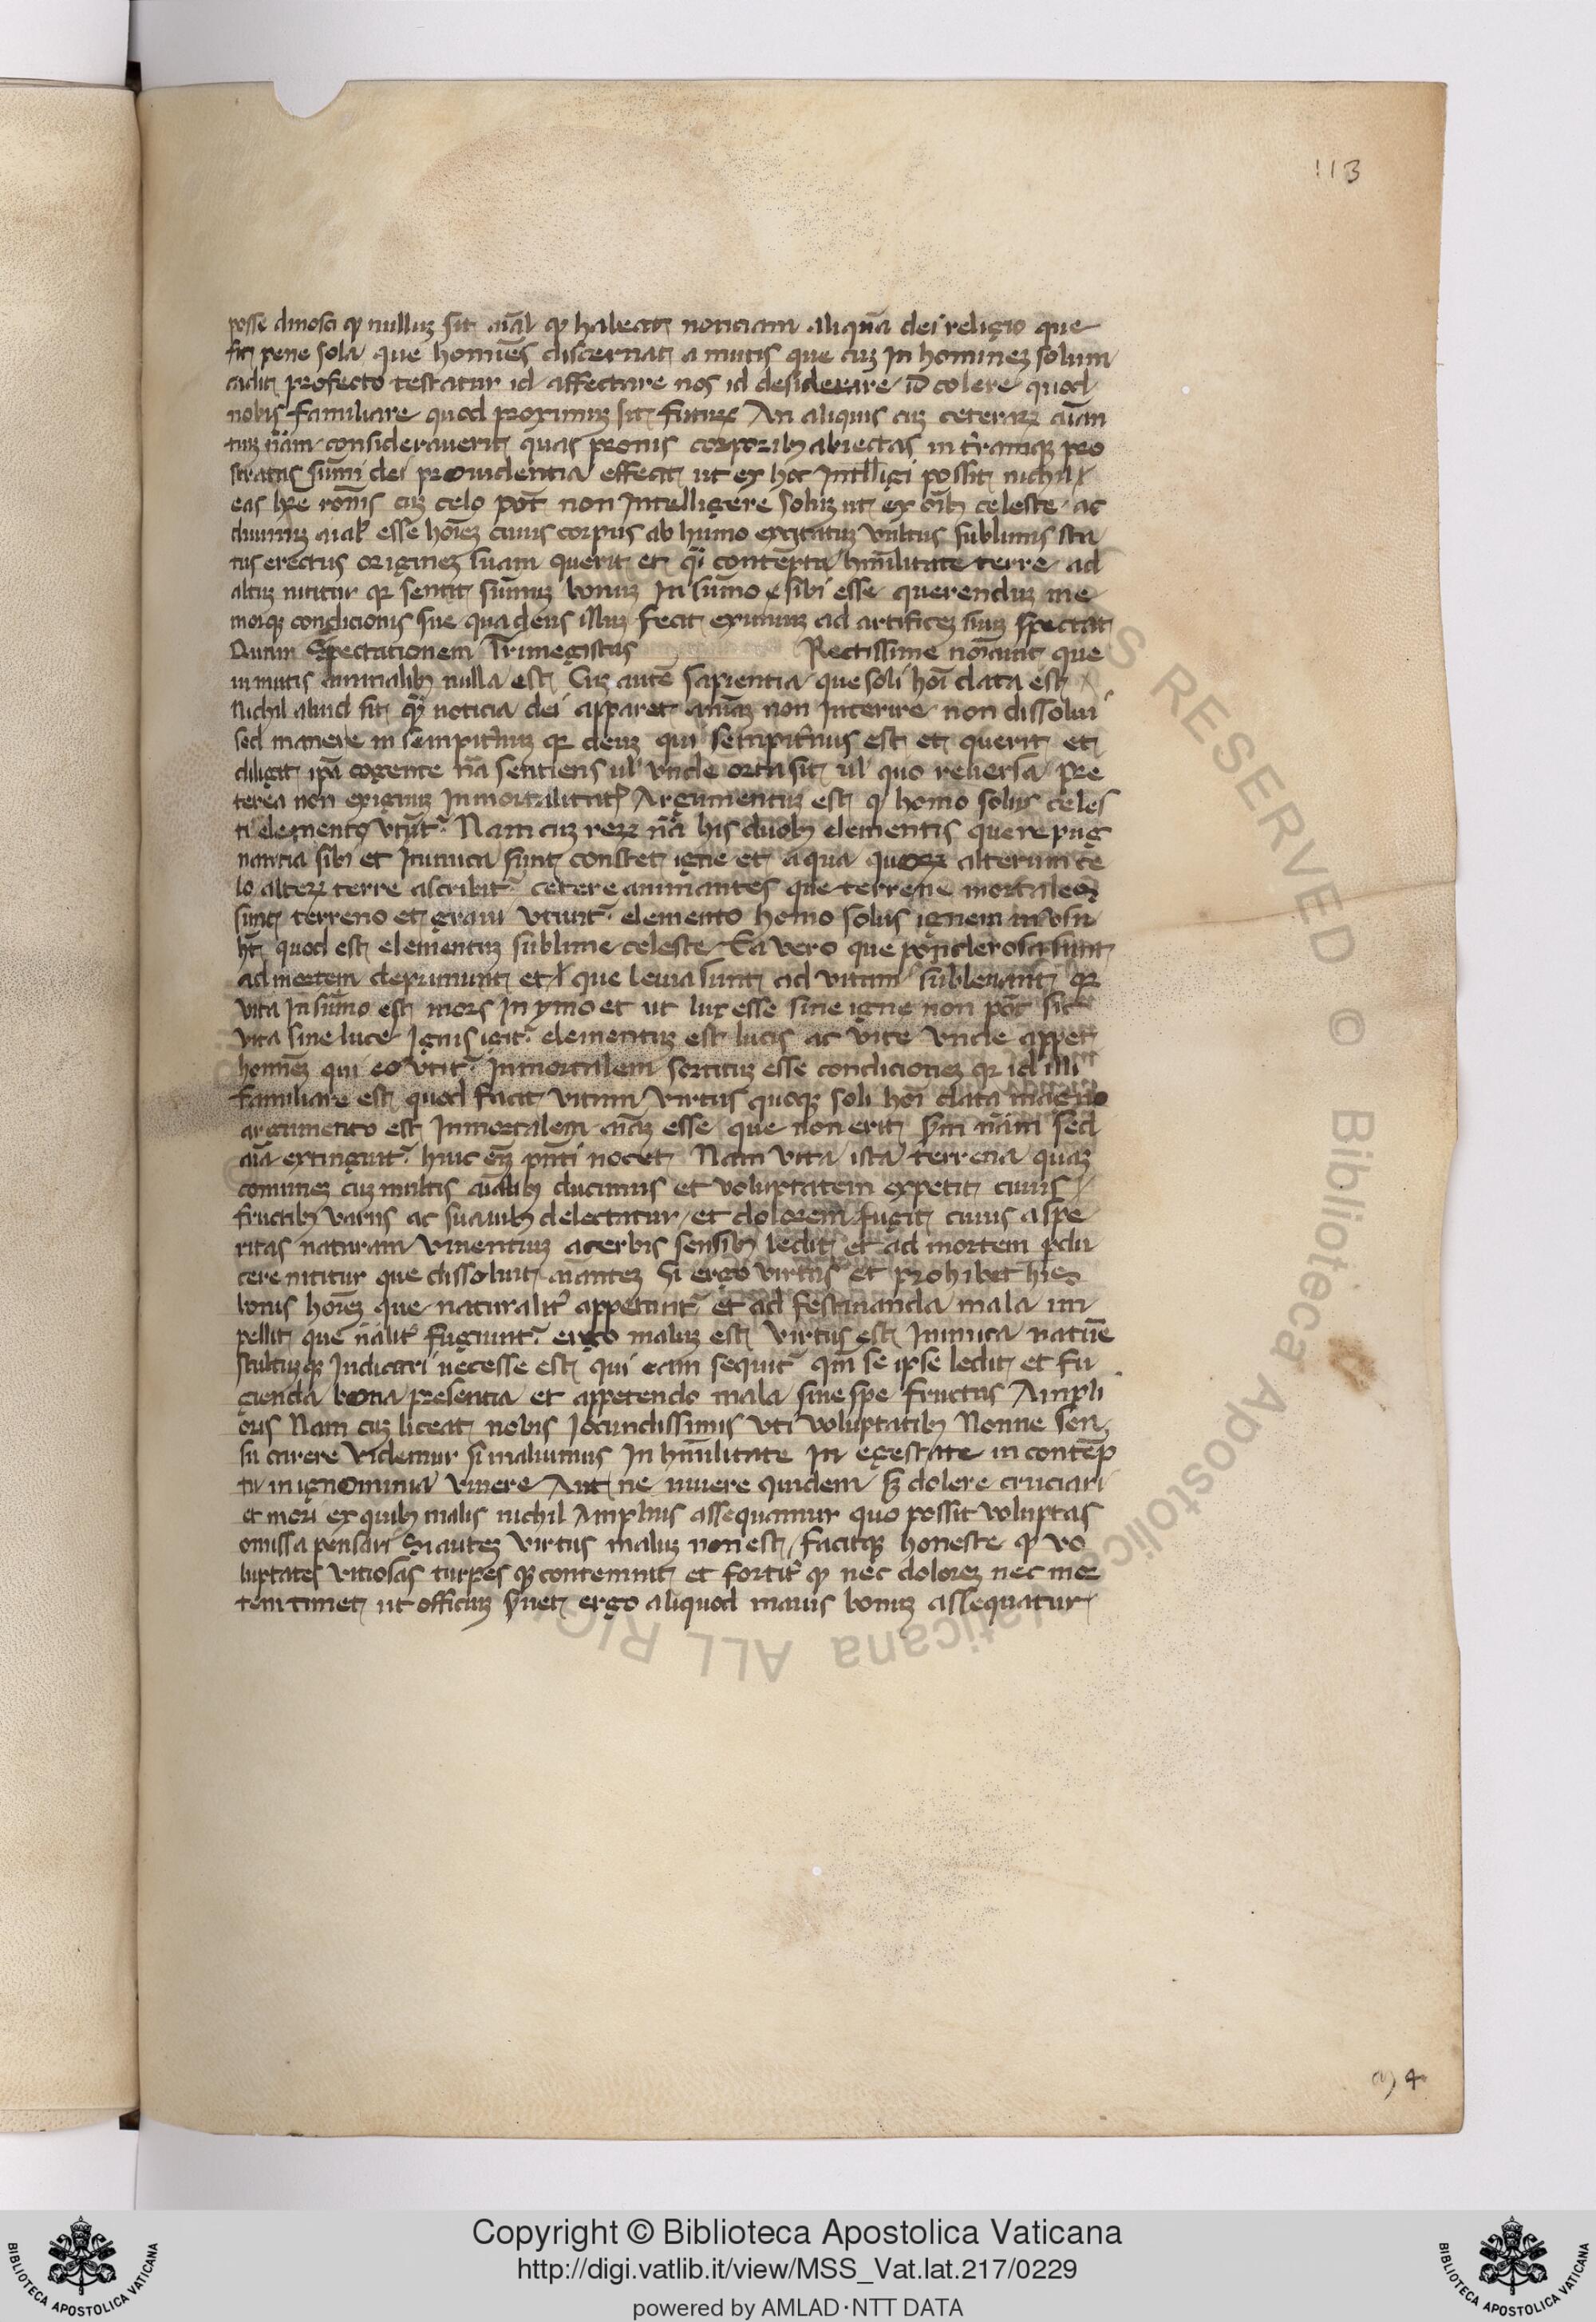 113
posse dinosci qͥ nulluꝫ sit aīal qͥ habeat noticiam aliquā dei religio que
fit pene sola que homīes discernat a mutis que cuꝫ In homineꝫ solum
cadit profecto testatur id affectare nos id desiderare id colere quod
nobis familiare quod proximuꝫ sit futurꝫ An aliquis cuꝫ ceterarꝝ aīan
tuꝫ nām considerauerit quas pronis corporibꝫ abiectas in tr̄amqꝫ pro
stratas sum̄i dei prouidentia effecit ut ex hoc Intll̄igi possit nichil
eas hr̄e ron̄is cuꝫ celo pot̄ non Intelligere soluꝫ ut ex oīb celeste ac
diuinuꝫ aīal esse hoīeꝫ cuius corpus ab humo excitatuꝫ vultus sublimis sta
tus erectus origineꝫ suam querit et qͣi contēpta humilitate terre ad
altuꝫ nititur qꝛ sentit sum̄uꝫ bonuꝫ In sum̄o sibi esse querenduꝫ me
morqꝫ condicionis sue qua deus illuꝫ fecit eximiuꝫ ad artificeꝫ suuꝫ spectat
Quam Spectationem Trimegistus Rectissime noīauit que
in mutis animalibꝫ nulla est Cuꝫ autē sapientia que soli hoī data est
Nichil aliud sit qͣꝫ noticia dei apparet animāꝫ non Interire non dissolui
sed manere in sempit̄nuꝫ qꝛ deuꝫ qui sempit̄nus est et querit et
diligit ipā cogente nā sentiens ul̄ vnde orta sit ul̄ quo reuersa Pre
terea non exiguuꝫ Inmortalitatꝭ Argumentuꝫ est qͥ homo solus celes
ti elemento vtit̄ Nam cuꝫ rerꝝ nā his duobꝫ elementis que repug
nantia sibi et Inimica sunt constet igne et aqua quorꝝ alterum ce
lo alterꝝ terre ascribit̄ cetere animantes que terrene mortales
sunt terreno et graui vtunt̄ elemento homo solus ignem in vsu
ht̄ quod est elementuꝫ sublime celeste Ea vero que ponderosa sunt
ad mortem deprimunt et que leuia sunt ad vitam subleuant qꝛ
vita In sum̄o est mors In ymo et ut lux esse sine igne non pot̄ sic
vita sine luce Ignis igit̄ elementuꝫ est lucis ac vite vnde appet
homineꝫ qui eo vtit̄ Inmortalem sortituꝫ esse condicioneꝫ qꝛ id illi
familiare est quod facit vitam virtus quoqꝫ soli hoī data magno
argumento est Inmortalem aīaꝫ esse que non erit s̄m nām sed
aīa extinguit̄ huic eīꝫ pn̄ti nocet Nam vita ista terrena quaꝫ
comuneꝫ cuꝫ multis aīalibꝫ ducimus et voluptatem expetit cuius
fructibꝫ varijs ac suauibꝫ delectatur et dolorem fugit cuius aspe
ritas naturam viuentiuꝫ acerbis sensibꝫ ledit et ad mortem pdu
cere nititur que dissoluit aīanteꝫ Si ergo virtus et prohibet hijs
bonis hoīeꝫ que naturalit̄ appetunt̄ et ad festinanda mala im
pellit que nālit̄ fugiunt̄ ergo maluꝫ est virtus est Inimica natūe
stultuꝫqꝫ Iudicari necesse est qui eam sequit̄ qm̄ se ipse ledit et fu
gienda bona presentia et appetendo mala sine spe fructus Ampli
oris Nam cuꝫ liceat nobis Iocundissimis vti voluptatibꝫ Nonne sen
su carere videmur si malumus In humilitate In egestate in contēp
tu in ignominia viuere Aut ne viuere quidem sꝫ dolere cruciari
et mori ex quibꝫ malis nichil Amplius assequamur quo possit voluptas
omissa pensari Si auteꝫ virtus maluꝫ non est facitqꝫ honeste qͥ vo
luptates vitiosas turpes qꝫ contemnit et fortit̄ qͥ nec doloreꝫ nec mor
tem timet ut officiuꝫ s̄uet ergo aliquod maius bonuꝫ assequatur
Copyright © Biblioteca Apostolica Vaticana
http://digi.vatlib.it/view/MSS_Vat.lat.217/0229
powered by AMLAD·NTT DATA
BIBLIOTECA APOSTOLICA VATICANA
BIBLIOTECA APOSTOLICA VATICANA